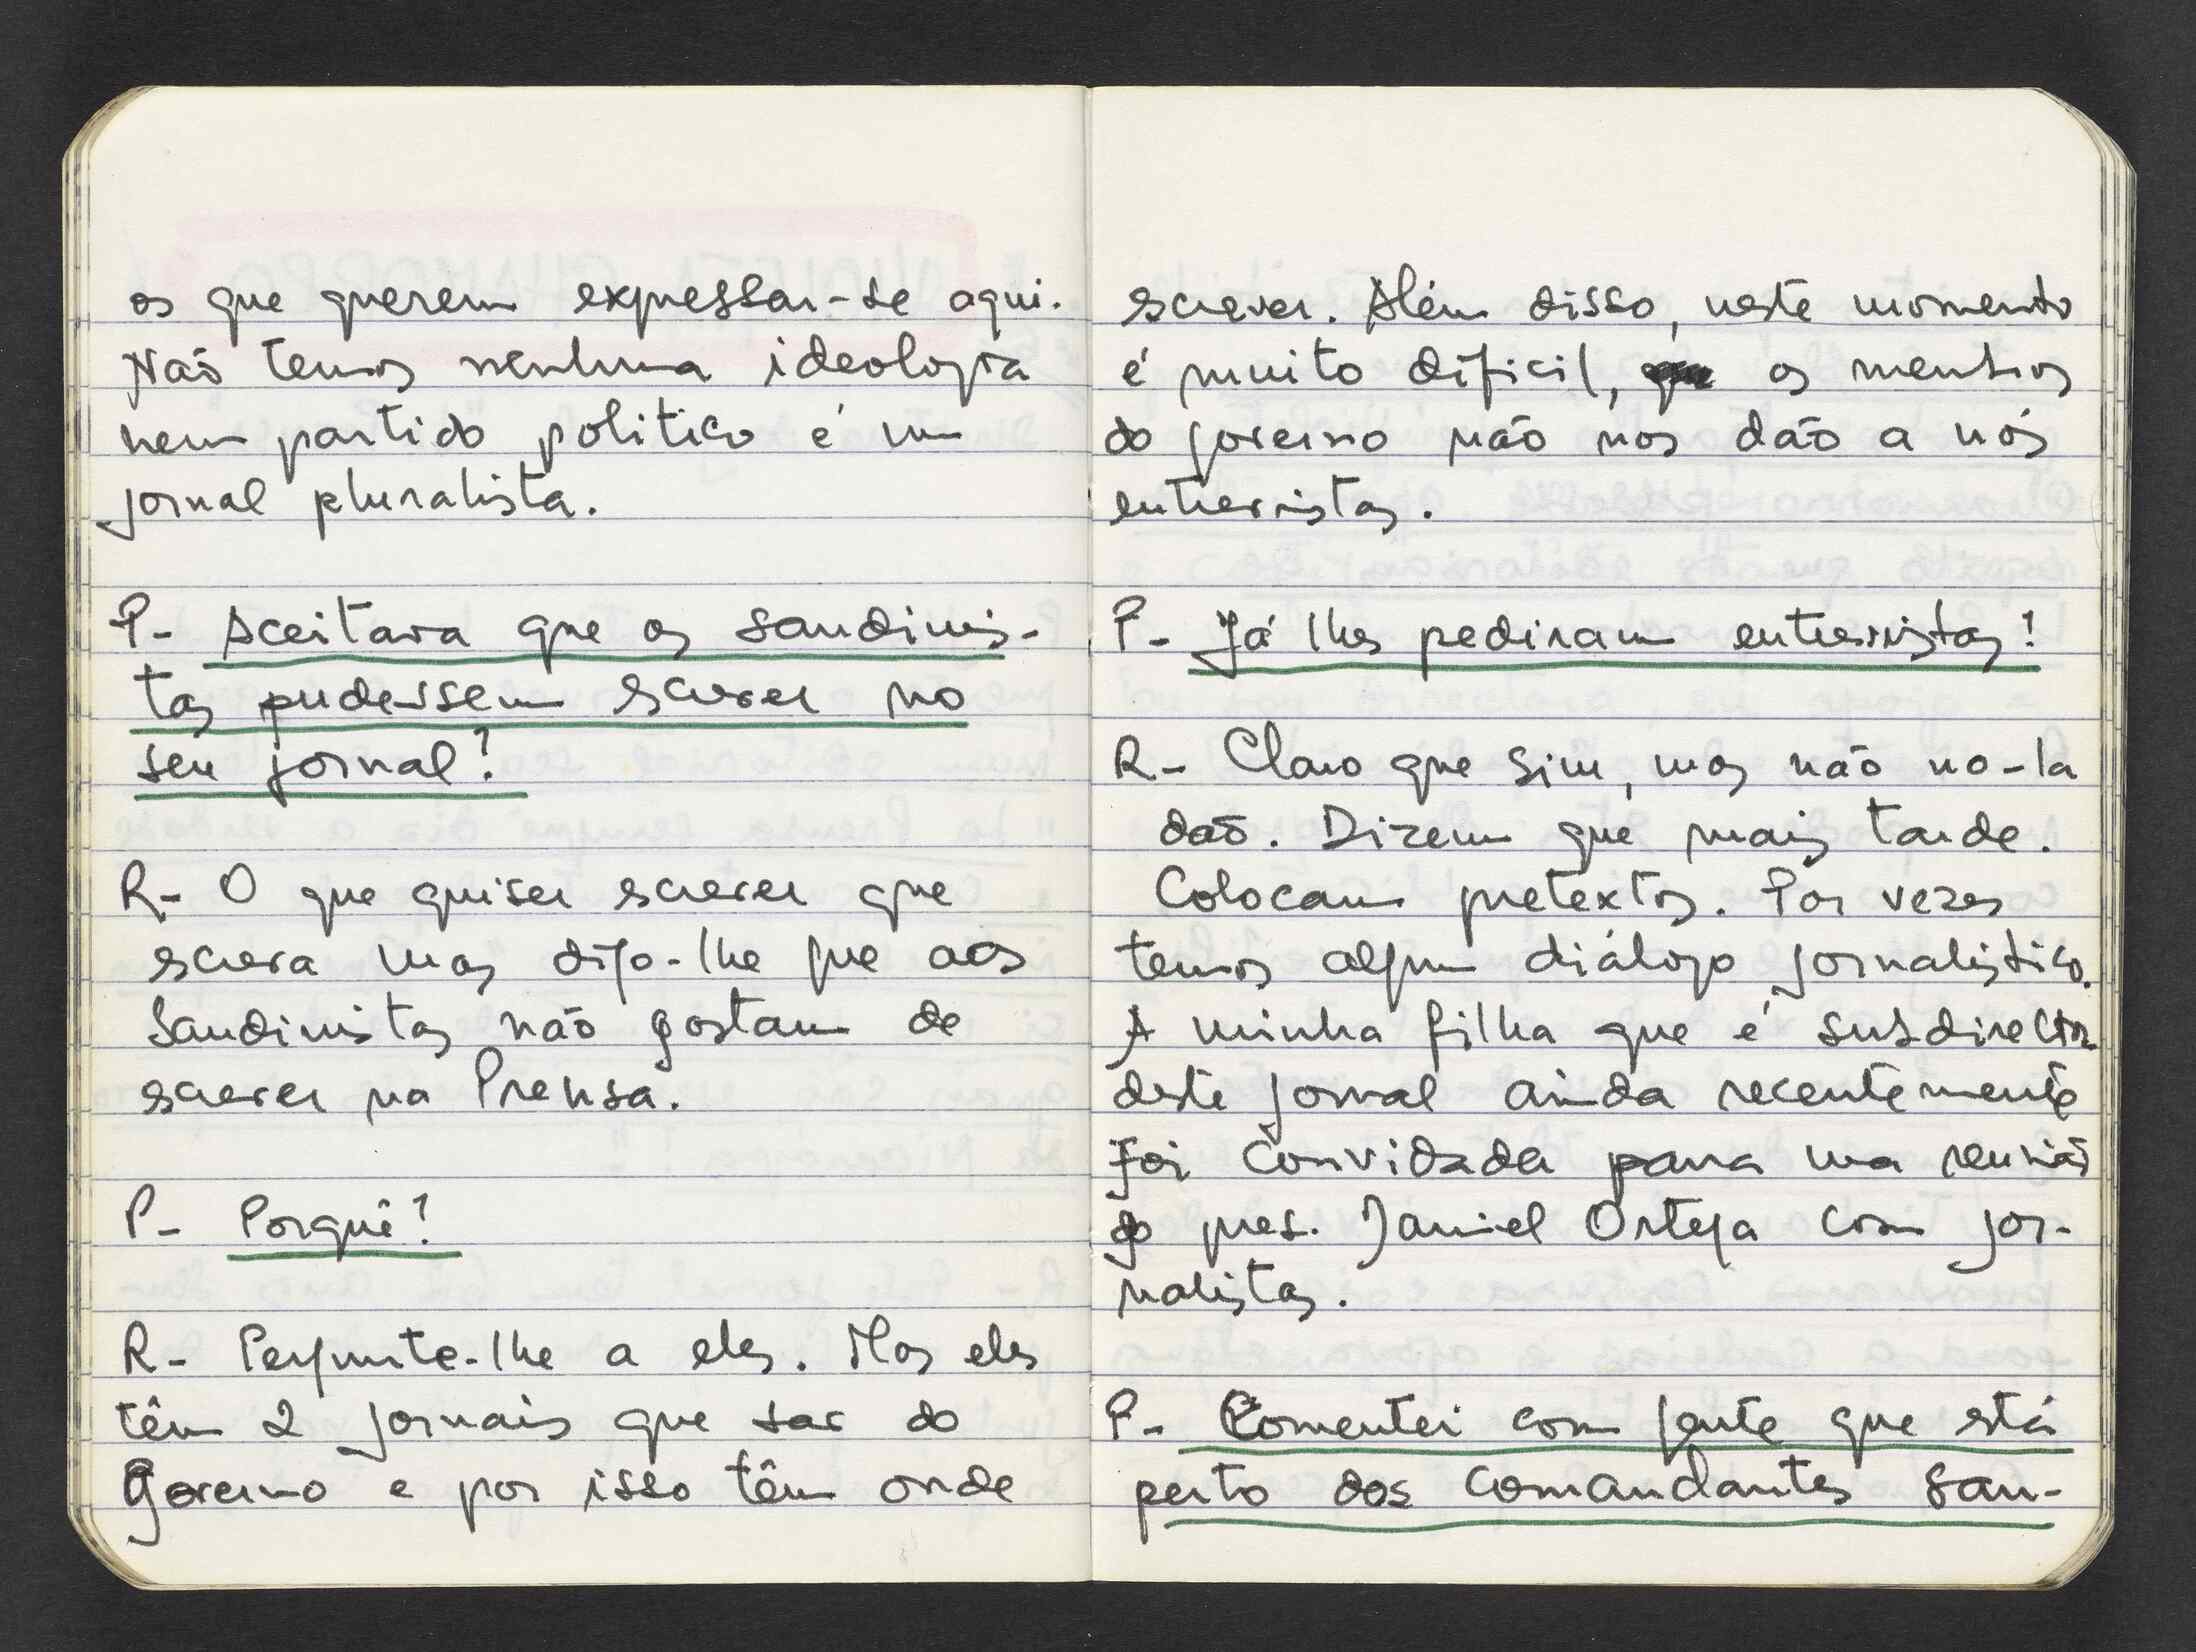 os que querem expressar-se aqui.
Não temos nenhuma ideologia
nem partido politico é um
jornal pluralista.
P- Aceitava que os sandinis-
tas pudessem escrever no
seu jornal?
R- O que quiser escrever que
escreva mas digo-lhe que aos
Sandinistas não gostam de
escrever na Prensa.
P- Porquê?
R- Pergunte-lhe a eles. Mas eles
têm 2 jornais que são do
Governo e por isso têm onde
escrever. Além disso, neste momento
é muito dificil, os membros
do governo não nos dão a nós
entrevistas.
P- Já lhes pediram entrevistas?
R- Claro que sim, mas não no-la
dão. Dizem que mais tarde.
Colocam pretextos. Por vezes
temos algum diálogo jornalistico.
A minha filha que é subdirectora
deste jornal ainda recentemente
foi convidada para uma reunião
do pres. Daniel Ortega com jor-
nalistas.
P- Comentei com gente que está
perto dos comandantes San-